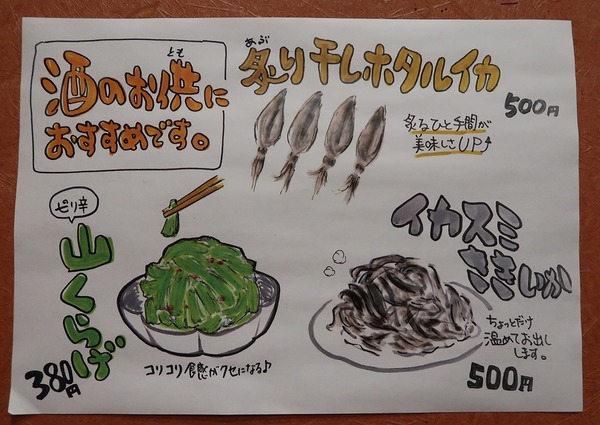 酒のお供に
とも
おすすめです。
あぶ
炙り干しホタルイカ
500円
炙るひと手間が
美味しさUP↑
ピリ辛
山くらげ
380円
コリコリ食感がクセになる♪
イカスミ
さきいか
ちょっとだけ
温めてお出し
します。
500円